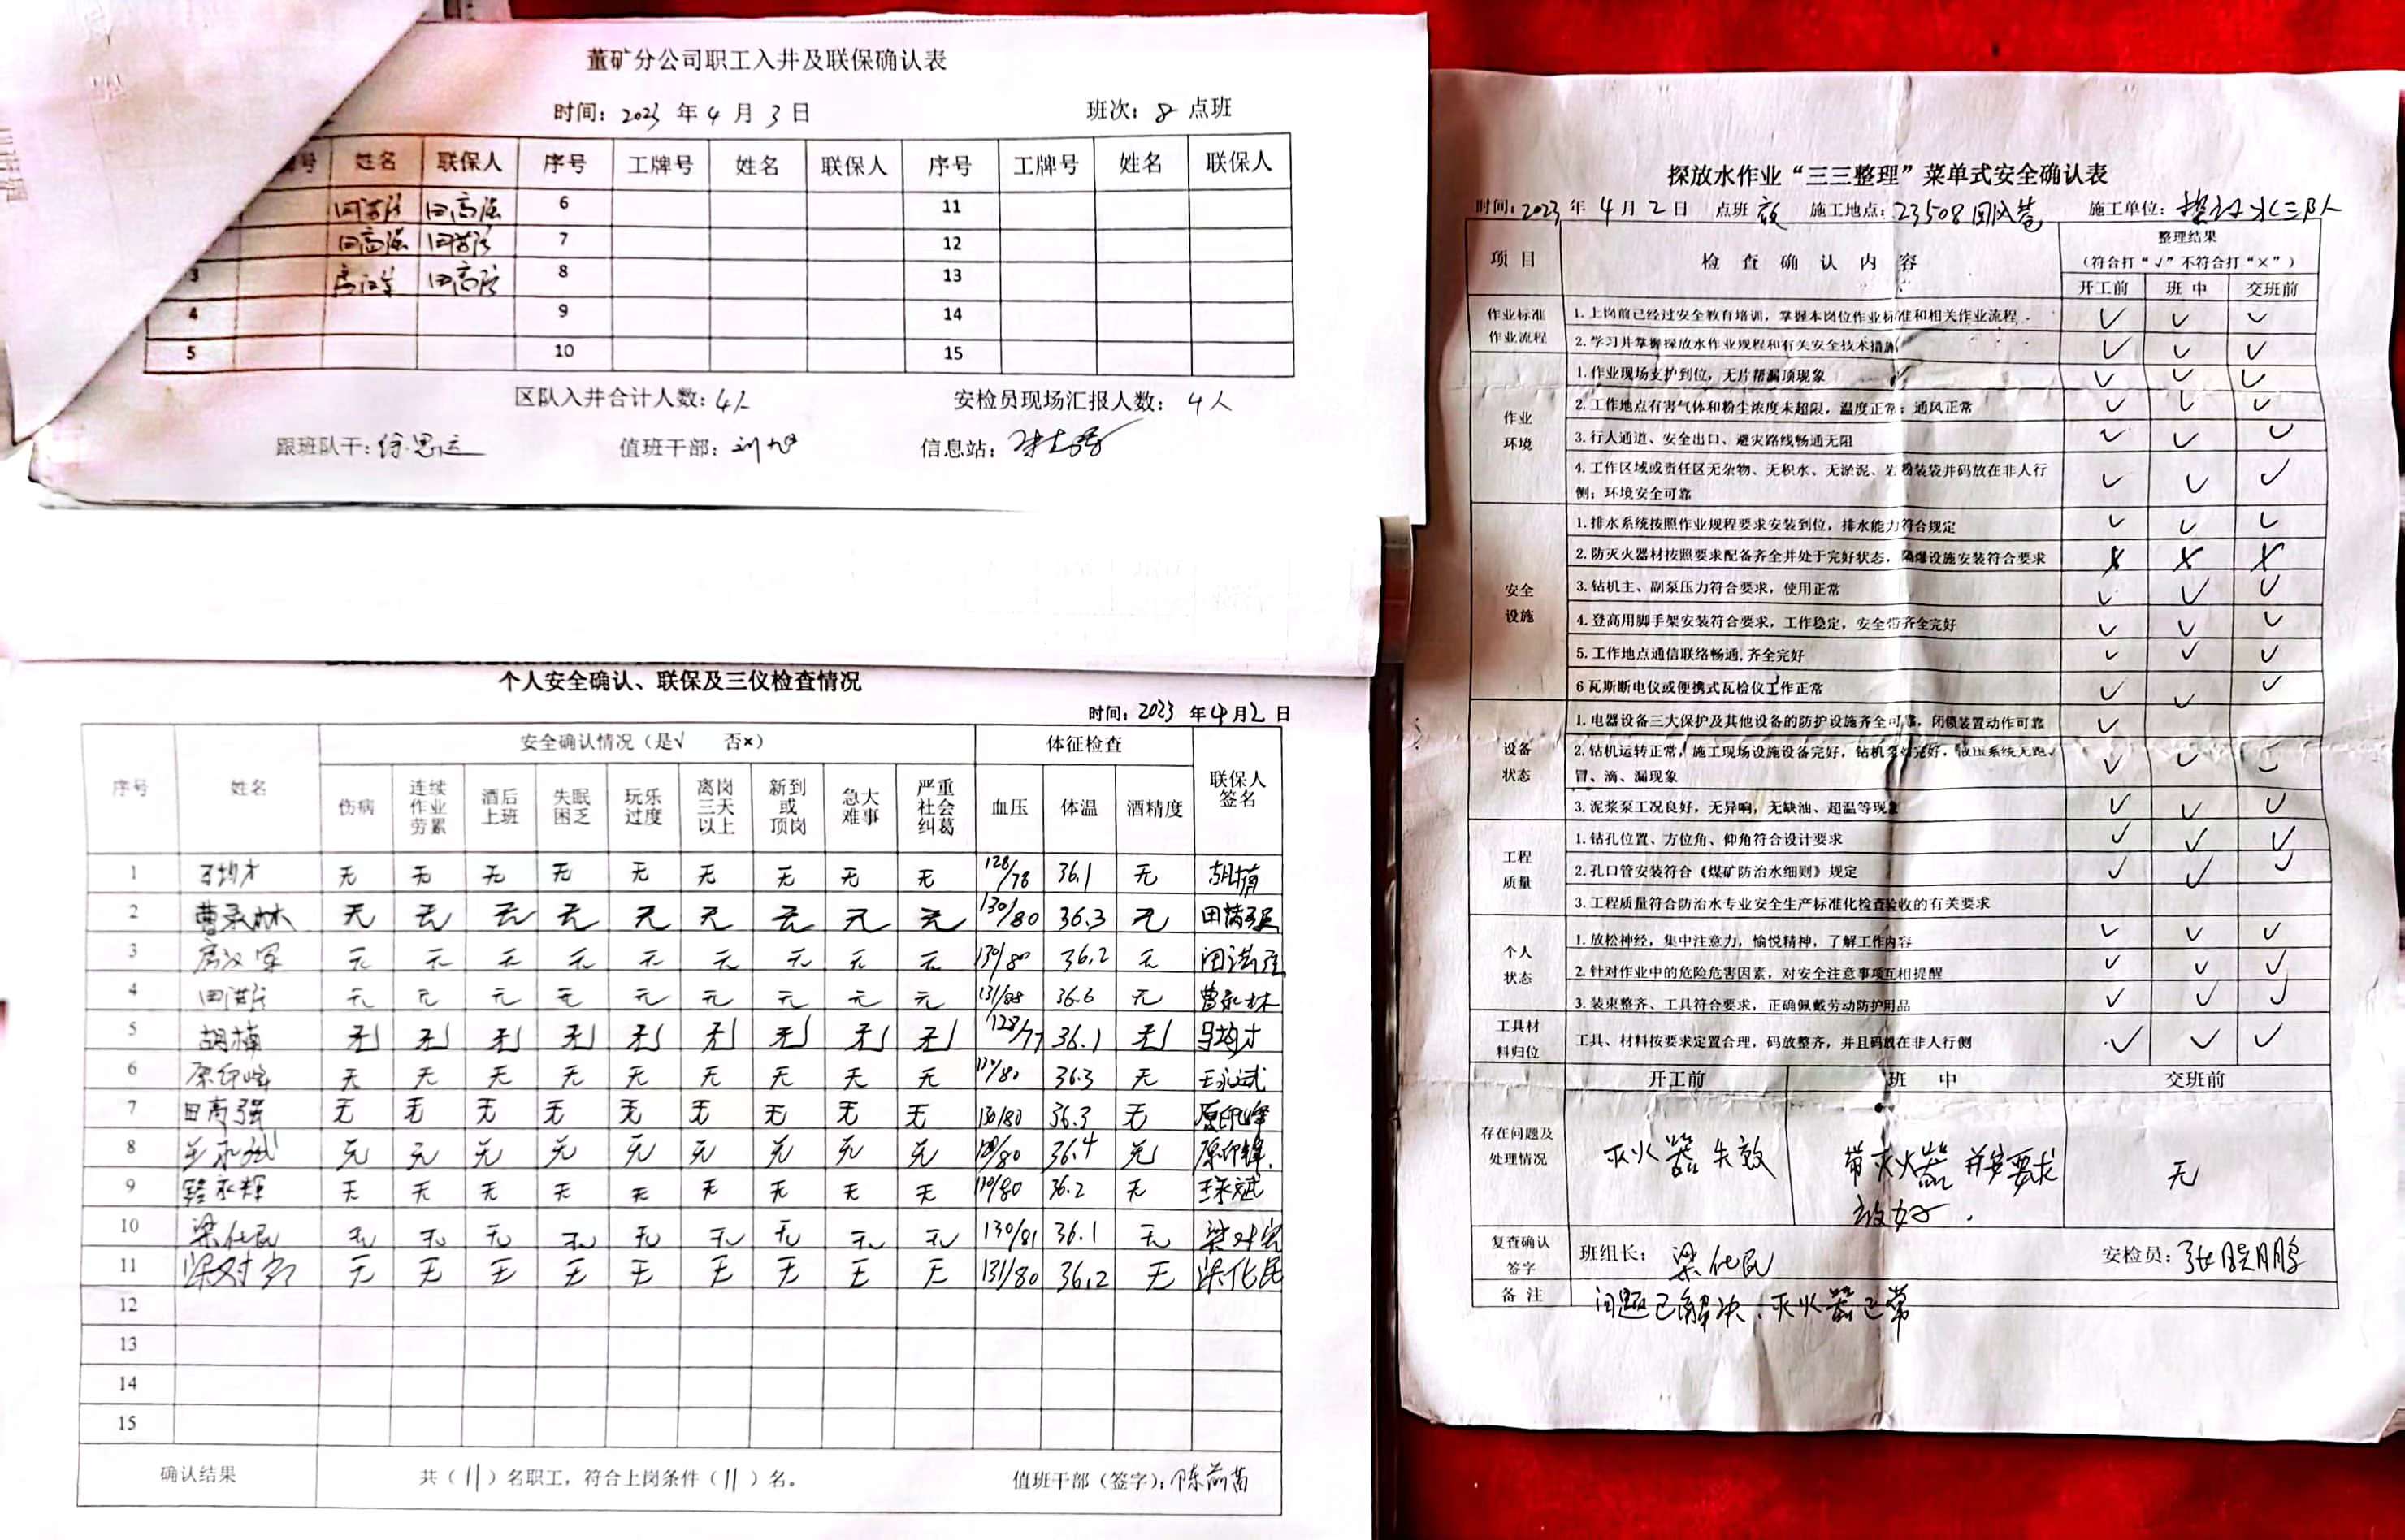 董矿分公司职工入井及联保确认表
时间：2023 年 4 月 3 日 班次：8 点班
号 姓名 联保人 序号 工牌号 姓名 联保人 序号 工牌号 姓名 联保人
田高强 6 11
田高强 7 12
3 田高强 8 13
4 9 14
5 10 15
区队入井合计人数：4人 安检员现场汇报人数：4人
跟班队干：徐思运 值班干部：刘旭 信息站：
个人安全确认、联保及三仪检查情况
时间：2023 年4月2日
序号 姓名 安全确认情况（是√ 否×） 体征检查 联保人签名
伤病 连续作业劳累 酒后上班 失眠困乏 玩乐过度 离岗三天以上 新到或顶岗 急大难事 严重社会纠葛 血压 体温 酒精度
1 无 无 无 无 无 无 无 无 无 128/78 36.1 无 胡楠
2 曹永林 无 无 无 无 无 无 无 无 无 130/80 36.3 无
3 无 无 无 无 无 无 无 无 无 130/80 36.2 无
4 无 无 无 无 无 无 无 无 无 131/88 36.6 无 曹永林
5 胡楠 无 无 无 无 无 无 无 无 无 128/77 36.1 无
6 原印峰 无 无 无 无 无 无 无 无 无 36.3 无 王永斌
7 田高强 无 无 无 无 无 无 无 无 无 130/80 36.3 无 原印峰
8 王永斌 无 无 无 无 无 无 无 无 无 36.4 无 原印峰
9 无 无 无 无 无 无 无 无 无 110/80 36.2 无 王永斌
10 梁化民 无 无 无 无 无 无 无 无 无 130/81 36.1 无
11 无 无 无 无 无 无 无 无 无 131/80 36.2 无 梁化民
12
13
14
15
确认结果 共（11）名职工，符合上岗条件（11）名。 值班干部（签字）：陈前苗
探放水作业“三三整理”菜单式安全确认表
时间：2023 年 4 月 2 日 点班 施工地点：23508回风巷 施工单位：探放水三队
项目 检查确认内容 整理结果
（符合打“√”不符合打“×”）
开工前 班中 交班前
作业标准作业流程 1.上岗前已经过安全教育培训，掌握本岗位作业标准和相关作业流程 √ √ √
2.学习并掌握探放水作业规程和有关安全技术措施 √ √ √
作业环境 1.作业现场支护到位，无片帮漏顶现象 √ √ √
2.工作地点有害气体和粉尘浓度未超限，温度正常；通风正常 √ √ √
3.行人通道、安全出口、避灾路线畅通无阻 √ √ √
4.工作区域或责任区无杂物、无积水、无淤泥、岩粉装袋并码放在非人行
侧；环境安全可靠 √ √ √
安全设施 1.排水系统按照作业规程要求安装到位，排水能力符合规定 √ √ √
2.防灭火器材按照要求配备齐全并处于完好状态，隔爆设施安装符合要求 × × ×
3.钻机主、副泵压力符合要求，使用正常 √ √ √
4.登高用脚手架安装符合要求，工作稳定，安全带齐全完好 √ √ √
5.工作地点通信联络畅通，齐全完好 √ √ √
6瓦斯断电仪或便携式瓦检仪工作正常 √ √ √
设备状态 1.电器设备三大保护及其他设备的防护设施齐全可靠，闭锁装置动作可靠 √
2.钻机运转正常，施工现场设施设备完好，钻机泵站完好，液压系统无跑、
冒、滴、漏现象 √ √ √
3.泥浆泵工况良好，无异响，无缺油、超温等现象 √ √ √
工程质量 1.钻孔位置、方位角、仰角符合设计要求 √ √ √
2.孔口管安装符合《煤矿防治水细则》规定 √ √ √
3.工程质量符合防治水专业安全生产标准化检查验收的有关要求
个人状态 1.放松神经，集中注意力，愉悦精神，了解工作内容 √ √ √
2.针对作业中的危险危害因素，对安全注意事项互相提醒 √ √ √
3.装束整齐、工具符合要求，正确佩戴劳动防护用品 √ √ √
工具材料归位 工具、材料按要求定置合理，码放整齐，并且码放在非人行侧 √ √ √
开工前 班中 交班前
存在问题及处理情况 灭火器失效 带灭火器并按要求
放好. 无
复查确认签字 班组长：梁化民 安检员：张
备注 问题已解决，灭火器正常